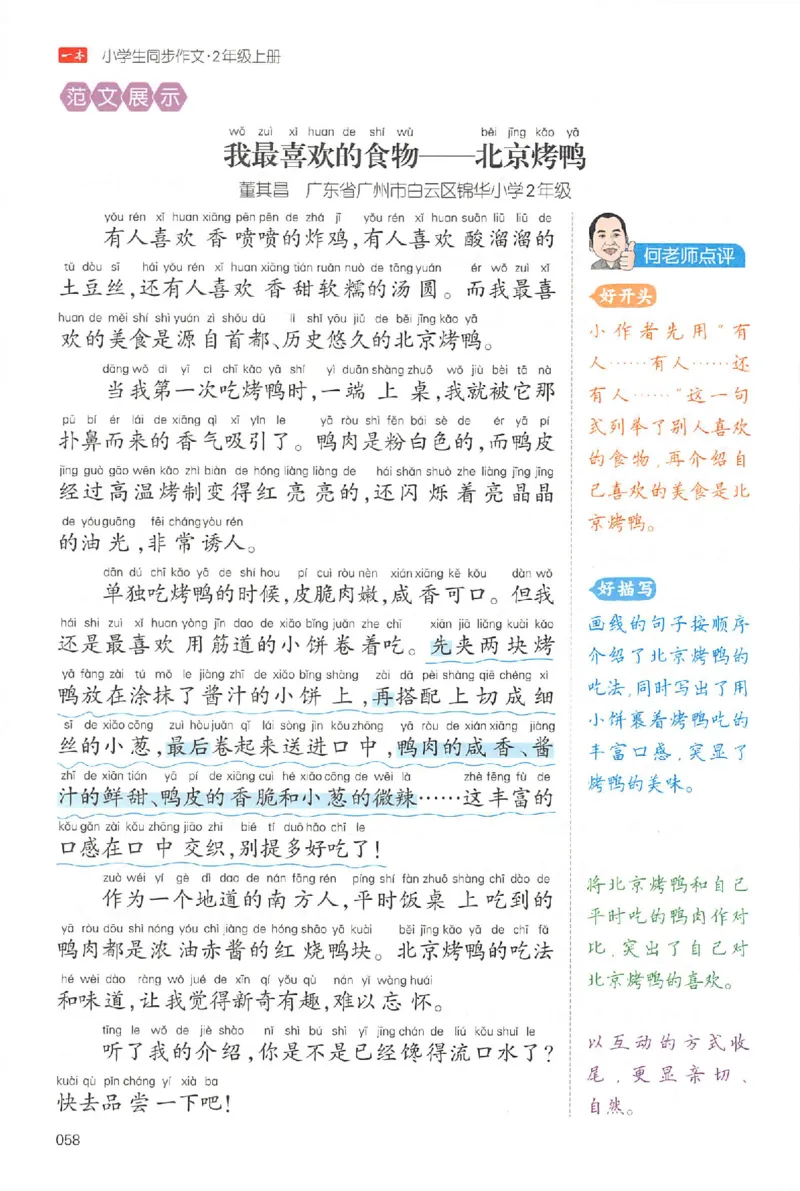 一本 小学生同步作文·2年级上册
范文展示
wǒ zuì xǐ huan de shí wù běi jīng kǎo yā
我最喜欢的食物——北京烤鸭
董其昌 广东省广州市白云区锦华小学2年级
yǒu rén xǐ huan xiāng pēn pēn de zhá jī yǒu rén xǐ huan suān liū liū de
有人喜欢香喷喷的炸鸡,有人喜欢酸溜溜的
tǔ dòu sī hái yǒu rén xǐ huan xiāng tián ruǎn nuò de tāng yuán ér wǒ zuì xǐ
土豆丝,还有人喜欢香甜软糯的汤圆。而我最喜
huan de měi shí shì yuán zì shǒu dū lì shǐ yōu jiǔ de běi jīng kǎo yā
欢的美食是源自首都、历史悠久的北京烤鸭。
dāng wǒ dì yī cì chī kǎo yā shí yì duān shàng zhuō wǒ jiù bèi tā nà
当我第一次吃烤鸭时,一端上桌,我就被它那
pū bí ér lái de xiāng qì xī yǐn le yā ròu shì fěn bái sè de ér yā pí
扑鼻而来的香气吸引了。鸭肉是粉白色的,而鸭皮
jīng guò gāo wēn kǎo zhì biàn de hóng liàng liàng de hái shǎn shuò zhe liàng jīng jīng
经过高温烤制变得红亮亮的,还闪烁着亮晶晶
de yóu guāng fēi cháng yòu rén
的油光,非常诱人。
dān dú chī kǎo yā de shí hou pí cuì ròu nèn xián xiāng kě kǒu dàn wǒ
单独吃烤鸭的时候,皮脆肉嫩,咸香可口。但我
hái shi zuì xǐ huan yòng jīn dao de xiǎo bǐng juǎn zhe chī xiān jiā liǎng kuài kǎo
还是最喜欢用筋道的小饼卷着吃。先夹两块烤
yā fàng zài tú mǒ le jiàng zhī de xiǎo bǐng shàng zài dā pèi shàng qiē chéng xì
鸭放在涂抹了酱汁的小饼上,再搭配上切成细
sī de xiǎo cōng zuì hòu juǎn qǐ lái sòng jìn kǒu zhōng yā ròu de xián xiāng jiàng
丝的小葱,最后卷起来送进口中,鸭肉的咸香、酱
zhī de xiān tián yā pí de xiāng cuì hé xiǎo cōng de wēi là zhè fēng fù de
汁的鲜甜、鸭皮的香脆和小葱的微辣……这丰富的
kǒu gǎn zài kǒu zhōng jiāo zhī bié tí duō hǎo chī le
口感在口中交织,别提多好吃了!
zuò wéi yí gè dì dao de nán fāng rén píng shí fàn zhuō shàng chī dào de
作为一个地道的南方人,平时饭桌上吃到的
yā ròu dōu shì nóng yóu chì jiàng de hóng shāo yā kuài běi jīng kǎo yā de chī fǎ
鸭肉都是浓油赤酱的红烧鸭块。北京烤鸭的吃法
hé wèi dào ràng wǒ jué de xīn qí yǒu qù nán yǐ wàng huái
和味道,让我觉得新奇有趣,难以忘怀。
tīng le wǒ de jiè shào nǐ shì bú shì yǐ jīng chán de liú kǒu shuǐ le
听了我的介绍,你是不是已经馋得流口水了?
kuài qù pǐn cháng yí xià ba
快去品尝一下吧!
何老师点评
好开头
小作者先用“有
人……有人……还
有人……”这一句
式列举了别人喜欢
的食物,再介绍自
己喜欢的美食是北
京烤鸭。
好描写
画线的句子按顺序
介绍了北京烤鸭的
吃法,同时写出了用
小饼裹着烤鸭吃的
丰富口感,突显了
烤鸭的美味。
将北京烤鸭和自己
平时吃的鸭肉作对
比,突出了自己对
北京烤鸭的喜欢。
以互动的方式收
尾,更显亲切、
自然。
058